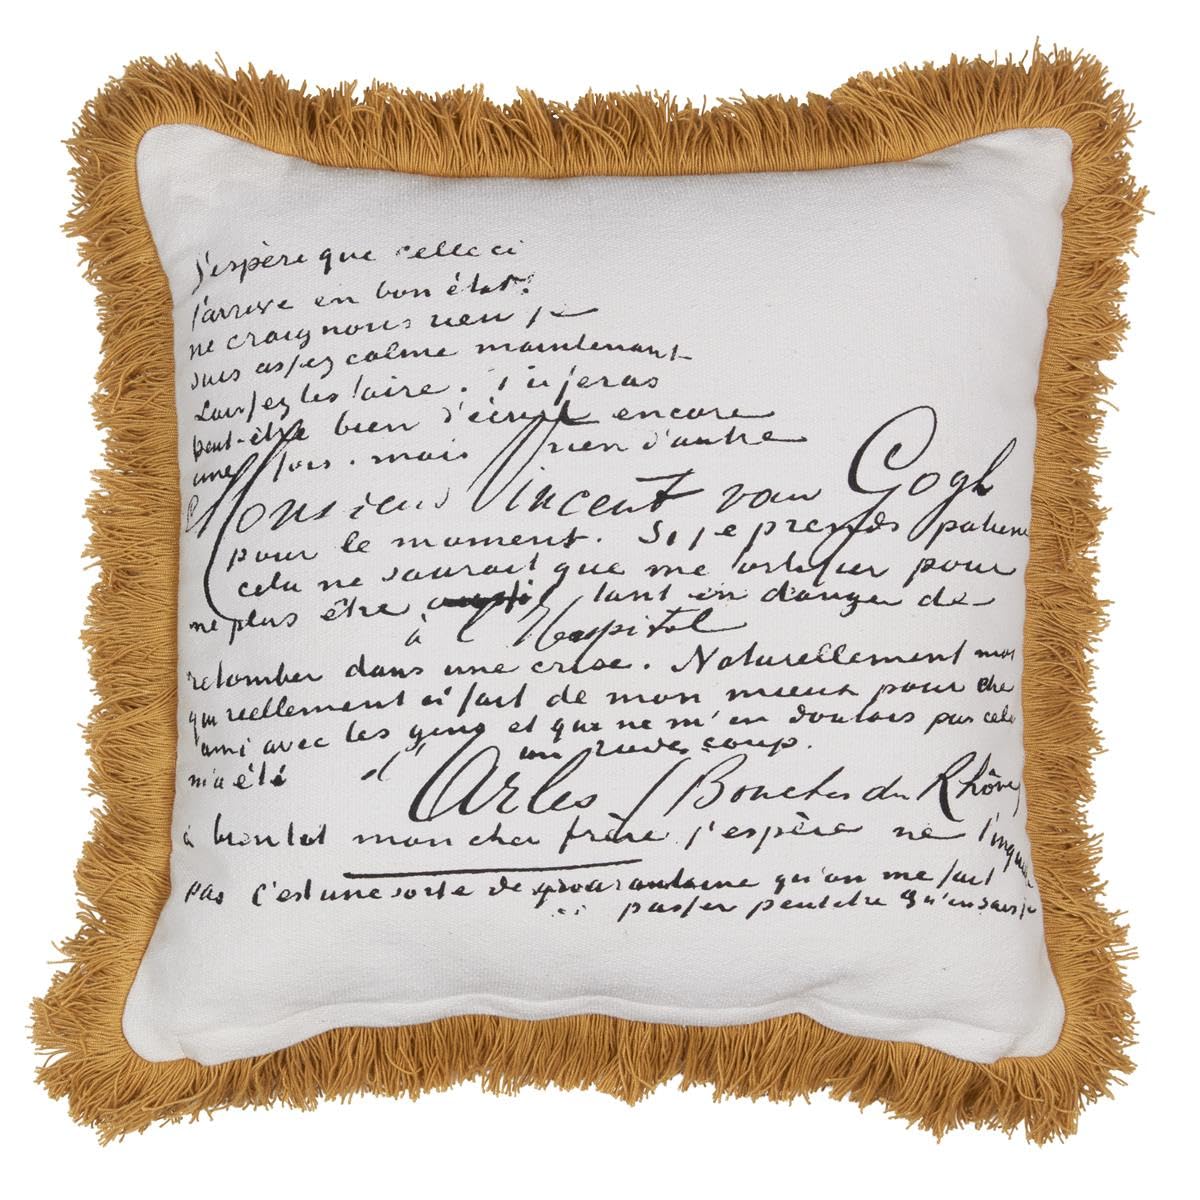 j'espère que celle ci
t'arrive en bon état.
ne craignons rien je
suis assez calme maintenant
Laissez les faire. Tu feras
peut-être bien d'écrire encore
une fois. mais rien d'autre
Monsieur Vincent van Gogh
pour le moment. Si je prends patience
cela ne saurait que me fortifier pour
ne plus être tant en danger de
à l'Hospital
retomber dans une crise. Naturellement moi
qui reellement ai fait de mon mieux pour être
ami avec les gens et qui ne m'en doutais pas cela
m'a été un rude coup.
d'Arles / Bouches du Rhône
à bientot mon cher frère j'espère ne t'inquiète
pas c'est une sorte de quarantaine qu'on me fait
passer peutetre qu'en sais je